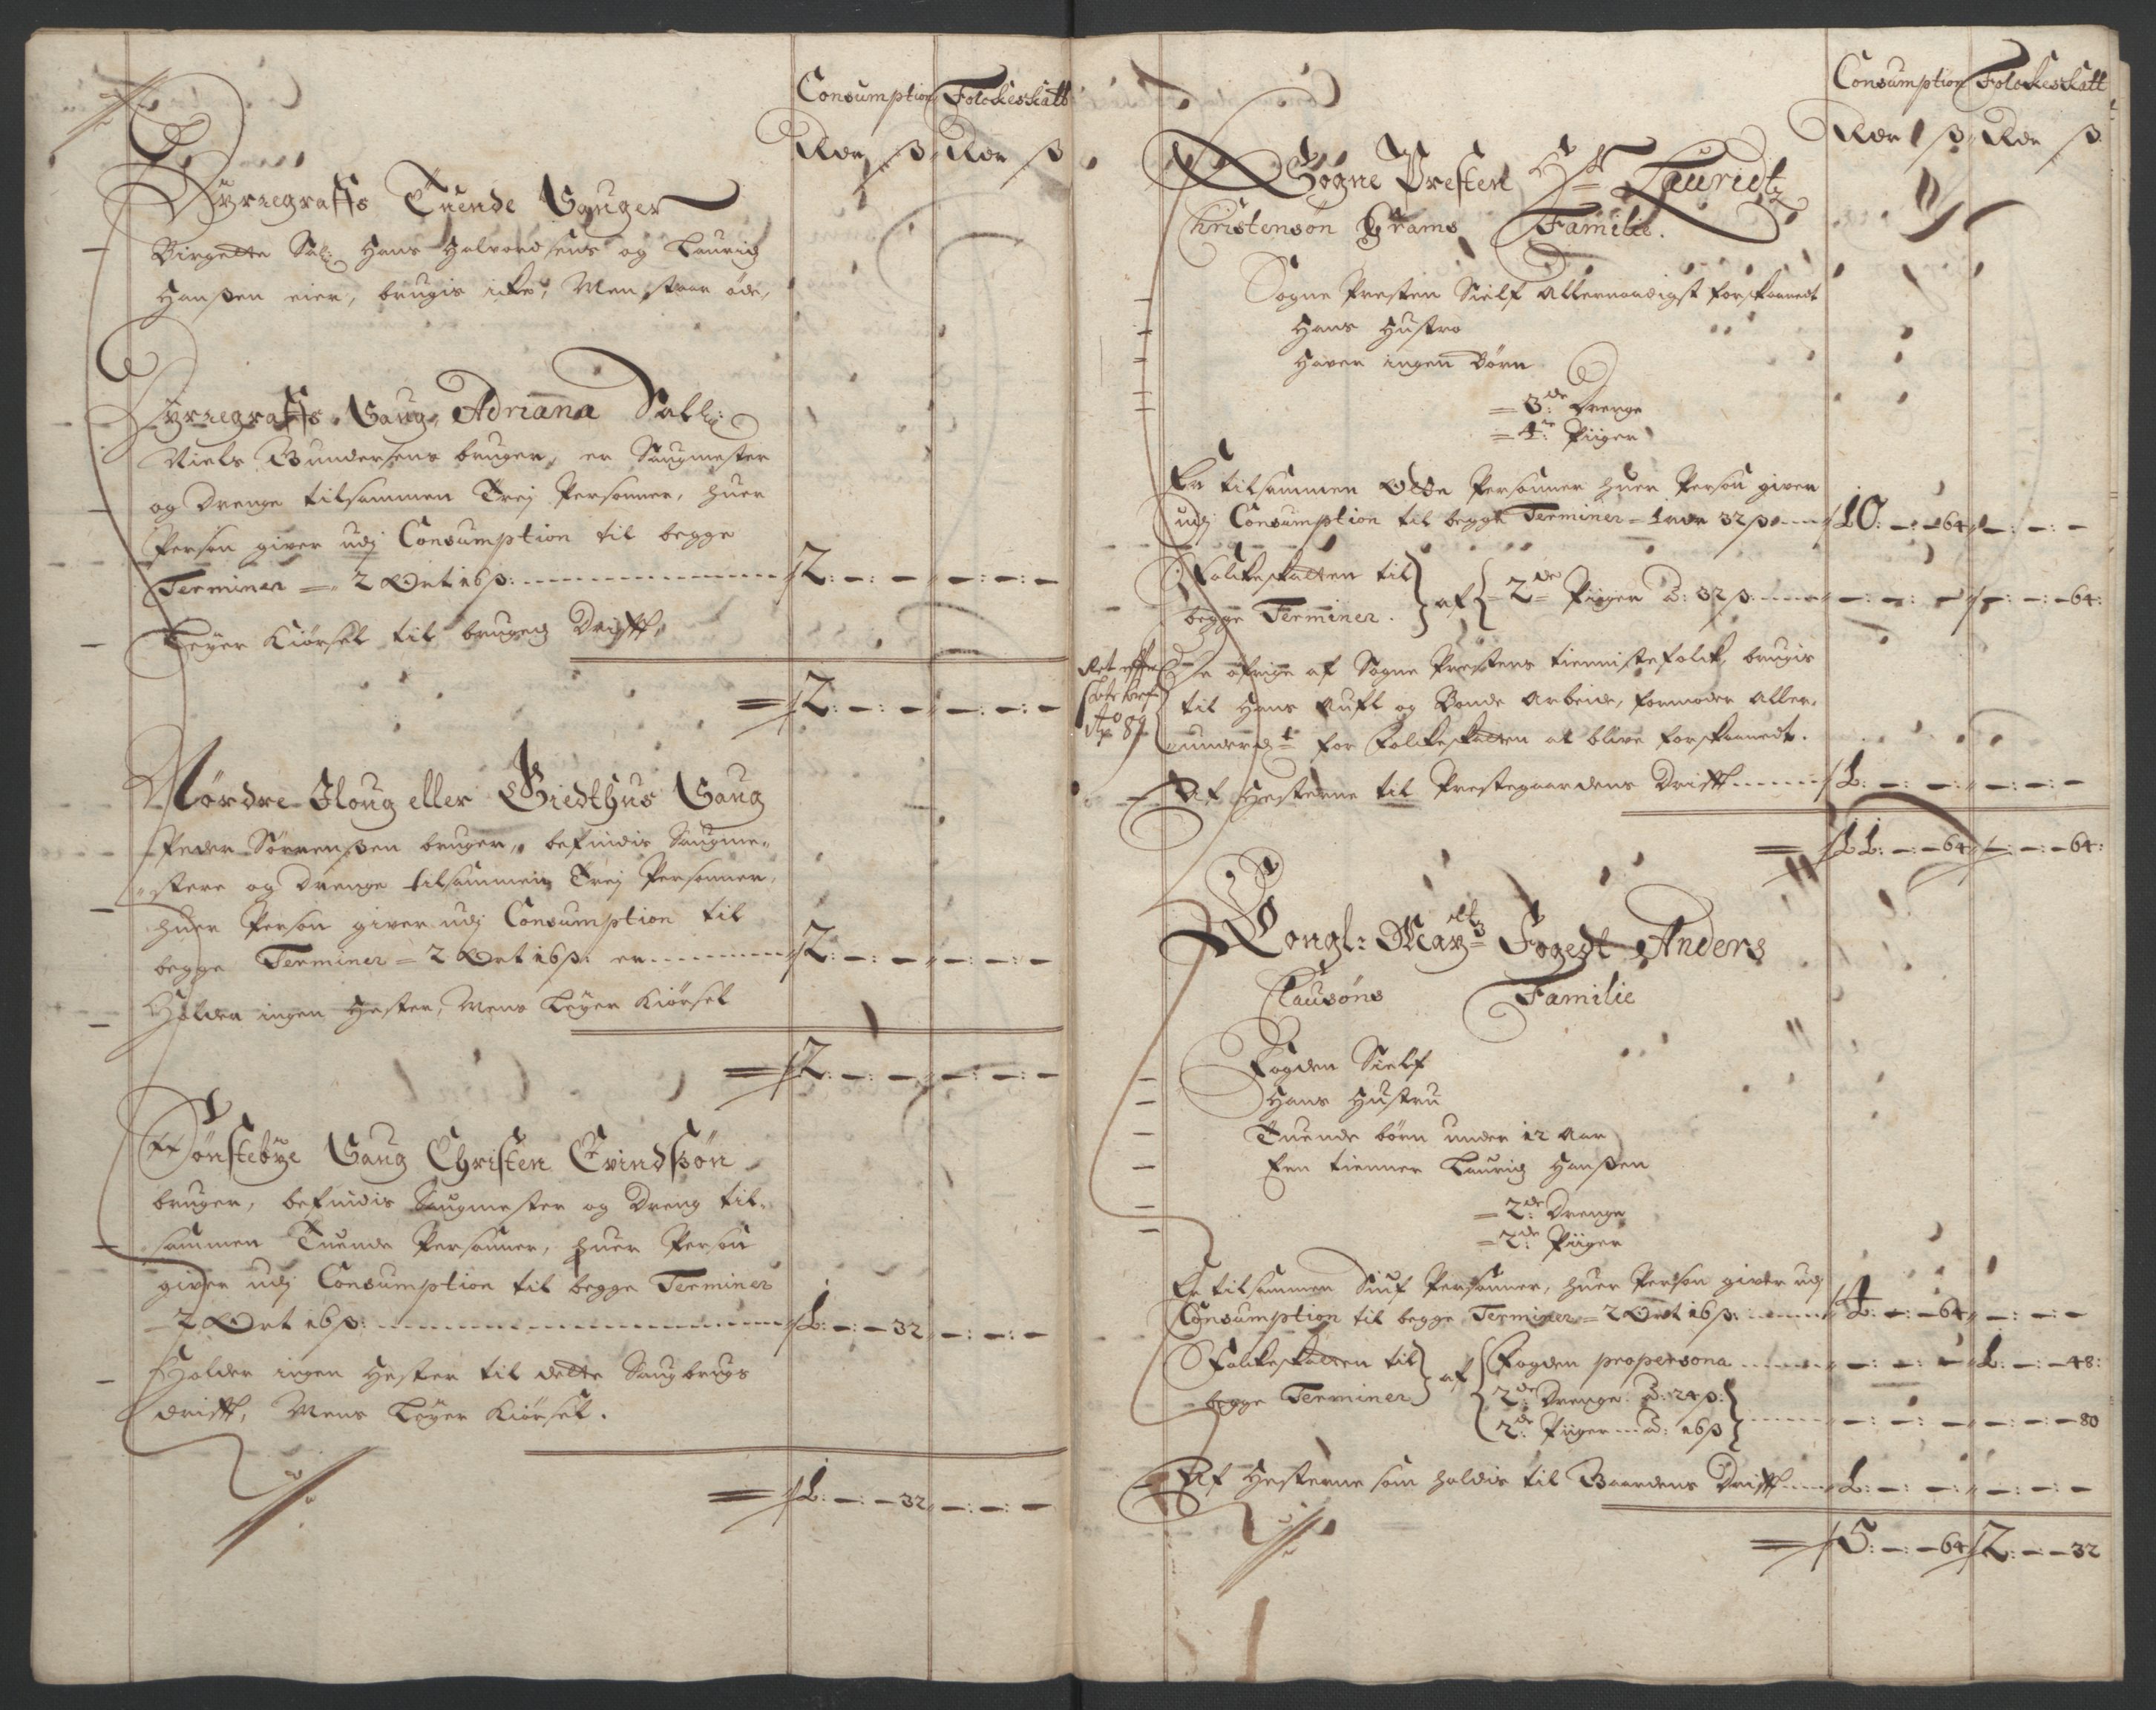 Consumption Folckeskatt
Rdr ß Rdr ß
Dyregraffs Tuende Sauger
Birgette Sal: Hans Halvordsens og Lauridz
Hanßen eier, brugis icke, Men staar øde,
Dyregraffs Saug, Adrianna Sall:
Niels Gundersens bruger, er Saugmester
og Drenge tilsammen Trej Personner, huer
Person giver udj Consumption til begge
Terminer = 2 Ort 16 ß: 2: — : — — : — : —
Leyer Kiørsel til brugedz Drifft,
= 2: — : — — : — : —
Nordre Floug eller Giedthus Saug
Peder Sørrenßen bruger, befindis Saugme-
stere og Drenge tilsammen Trej Personner,
huer Person giver udj Consumption til
begge Terminer = 2 Ort 16 ß: er 2: — : — — : — : —
Holder ingen Hester, Mens Leyer Kiørsel
= 2: — : — — : — : —
Tønstebye Saug Christen Evindsøn
bruger, befindis Saugmester og Dreng til-
sammen Tuende Personner, huer Person
giver udj Consumption til begge Terminer
2 Ort 16 ß: 1: — : — 32 — : — : —
Holder ingen Hester til dette Saugbrugs
drifft, Mens Leyer Kiørsel.
= 1: — : — 32 — : — : —
Consumption Folckeskatt
Rdr ß Rdr ß
Sogne Presten Hr Lauridtz
Christensøn Grams Familie.
Sogne Presten Sielf Allernaadigst forskaanedt
Hans Hustro
Haver ingen Børn
= 3de: Drenge
= 4re: Piiger
Er tilsammen Otte Personner huer Person giver
udj Consumption til begge Terminer = 1 rdr 32 ß 10: — : — 64 — : — : —
Folckeskatten til
begge Terminer. } af { 2de Piiger à: 32 ß — : — : — — : — : — 64:
De øfrige af Sogne Prestens tiennistefolck, brugis
til Hans Aufl og Bonde Arbeide, formoder Aller-
underdt for Folckeskatten at blive forskaanedt.
Af Hesterne til Prestegaardens Drifft 1: — : — — : — : —
= 11: — : — 64 — : — : — 64:
Kongl: Maytz Fogedt Anders
Clausøns Familie
Fogden Sielf
Hans Hustru
Tuende børn under 12 Aar
Een tienner Lauridz Hanßen
= 2de: Drenge
= 2de: Piiger
Er tilsammen Siuf Personner, huer Person giver udj
Consumption til begge Terminer = 2 Ort 16 ß: 4: — : — 64 — : — : —
Folckeskatten til
begge Terminer } af { Fogden propersona — : — : — 1: — : — 48:
2de: Drenge à: 24 ß:
2de: Piiger à: 16 ß } — : — : — — : — : — 80
Af Hesterne som holdis til Gaardens Drifft 1: — : — — : — : —
= 5: — : — 64 2: — : — 32